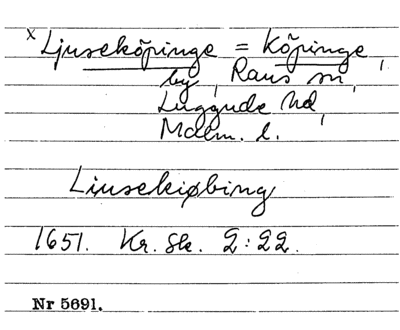 x Ljuseköpinge = Köpinge,
by, Raus sn,
Luggude hd,
Malm. l.
Liusekiøbing
1651. Kr. Sk. 2:22.
Nr 5691.